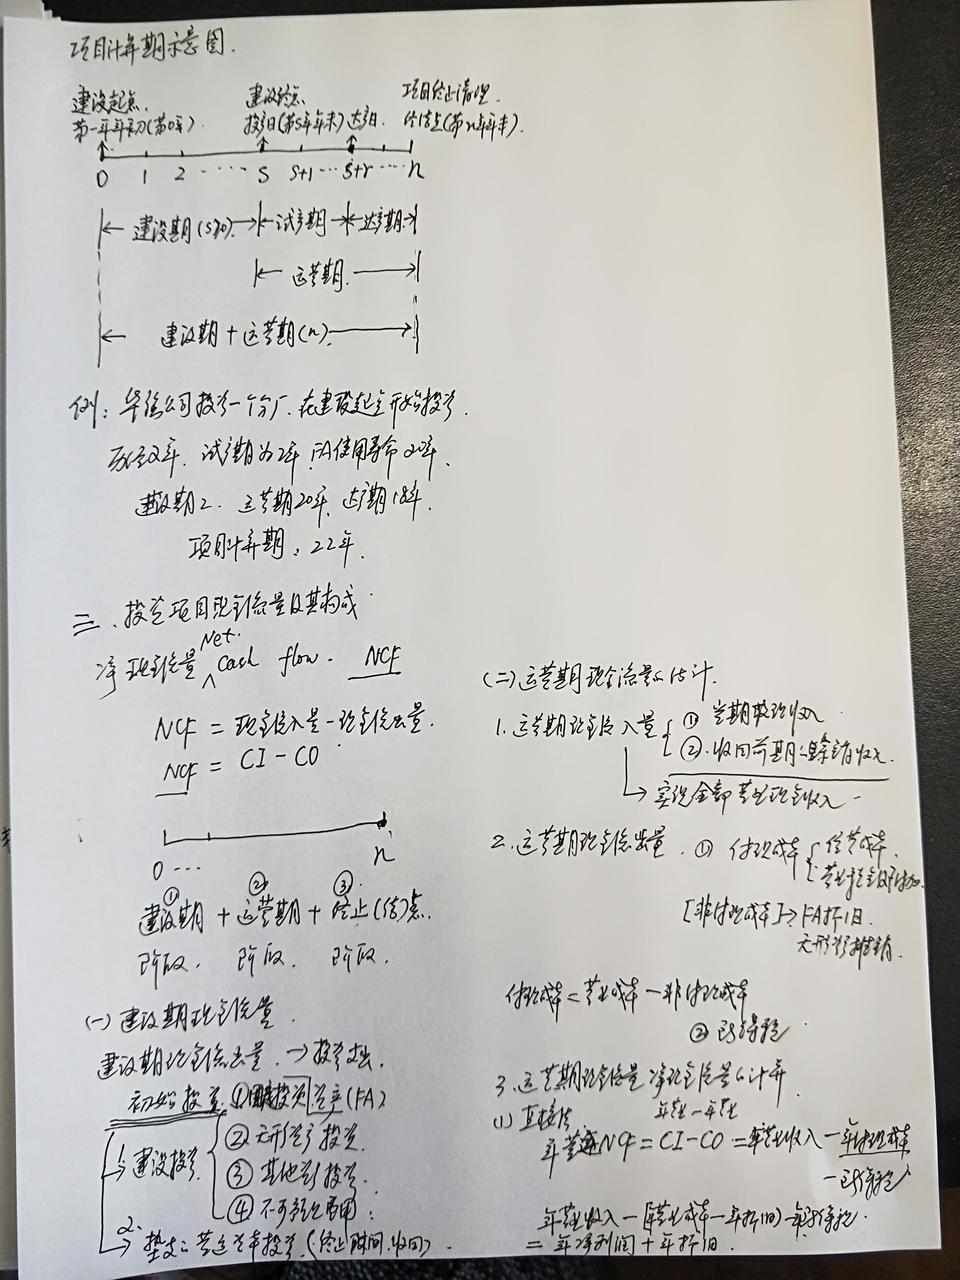 项目计算期示意图.
建设起点. 建设终点. 项目终止清理.
第一年年初(第0年). 投产日(第S年年末) 达产日. 终结点(第n年年末).
0 1 2 ...... S S+1 ... S+r ..... n
建设期(S≥0) 试产期 达产期
运营期.
建设期 + 运营期(n).
例: 华强公司投资一个分厂. 在建设起点开始投资.
历经2年. 试产期为2年, FA使用寿命20年.
建设期2. 运营期20年, 达产期18年.
项目计算期: 22年.
三. 投资项目现金流量及其构成.
净现金流量 Net. Cash flow. NCF
NCF = 现金流入量 - 现金流出量.
NCF = CI - CO
0 ... n
① ② ③
建设期 + 运营期 + 终止(结)点.
阶段. 阶段. 阶段.
(一) 建设期现金流量.
建设期现金流出量. → 投资支出.
初始投资 ① 投资 资产(FA)
1. 建设投资
② 无形资产投资.
③ 其他资产投资.
④ 不可预见费用.
2. 垫支: 营运资本投资. (终止时间. 收回).
(二) 运营期现金流量の估计.
1. 运营期现金流入量 ① 当期收现收入
② 收回前期の赊销收入.
→ 实现全部营业现金收入
2. 运营期现金流出量. ① 付现成本 经营成本.
营业税金及附加.
[非付现成本] → FA折旧.
无形资产摊销.
付现成本 = 营业成本 - 非付现成本
② 所得税
3. 运营期现金流量净现金流量の计算
(1) 直接法
年营运NCF = CI - CO = 年营业收入 - 年付现成本
- 所得税
年营业收入 - (年营业成本 - 年折旧) - 年所得税.
= 年净利润 + 年折旧.